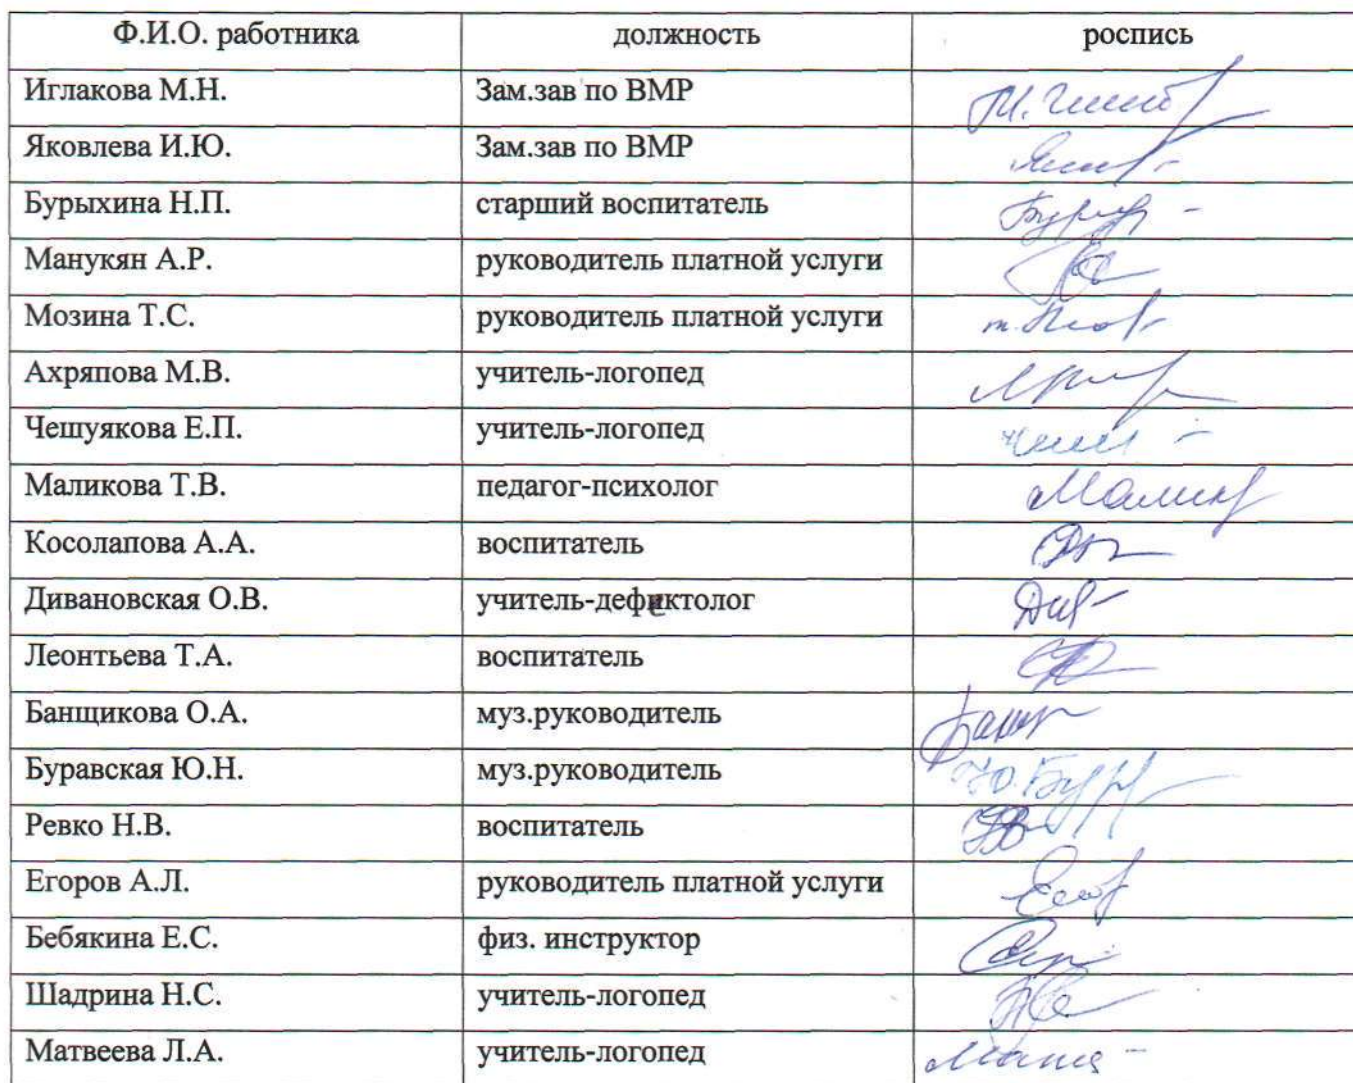 Ф.И.О. работника должность роспись
Иглакова М.Н. Зам.зав по ВМР
Яковлева И.Ю. Зам.зав по ВМР
Бурыхина Н.П. старший воспитатель
Манукян А.Р. руководитель платной услуги
Мозина Т.С. руководитель платной услуги
Ахряпова М.В. учитель-логопед
Чешуякова Е.П. учитель-логопед
Маликова Т.В. педагог-психолог
Косолапова А.А. воспитатель
Дивановская О.В. учитель-дефектолог
Леонтьева Т.А. воспитатель
Банщикова О.А. муз.руководитель
Буравская Ю.Н. муз.руководитель
Ревко Н.В. воспитатель
Егоров А.Л. руководитель платной услуги
Бебякина Е.С. физ. инструктор
Шадрина Н.С. учитель-логопед
Матвеева Л.А. учитель-логопед